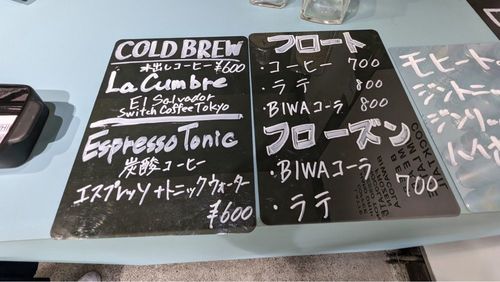 COLD BREW
水出しコーヒー ¥600
La Cumbre
El Salvador
Switch Coffee Tokyo
Espresso Tonic
炭酸コーヒー
エスプレッソ+トニックウォーター
¥600
フロート
・コーヒー 700
・ラテ 800
・BIWAコーラ 800
フローズン
・BIWAコーラ
700
・ラテ
モヒート
ジントニ
ジンリ
ハイ